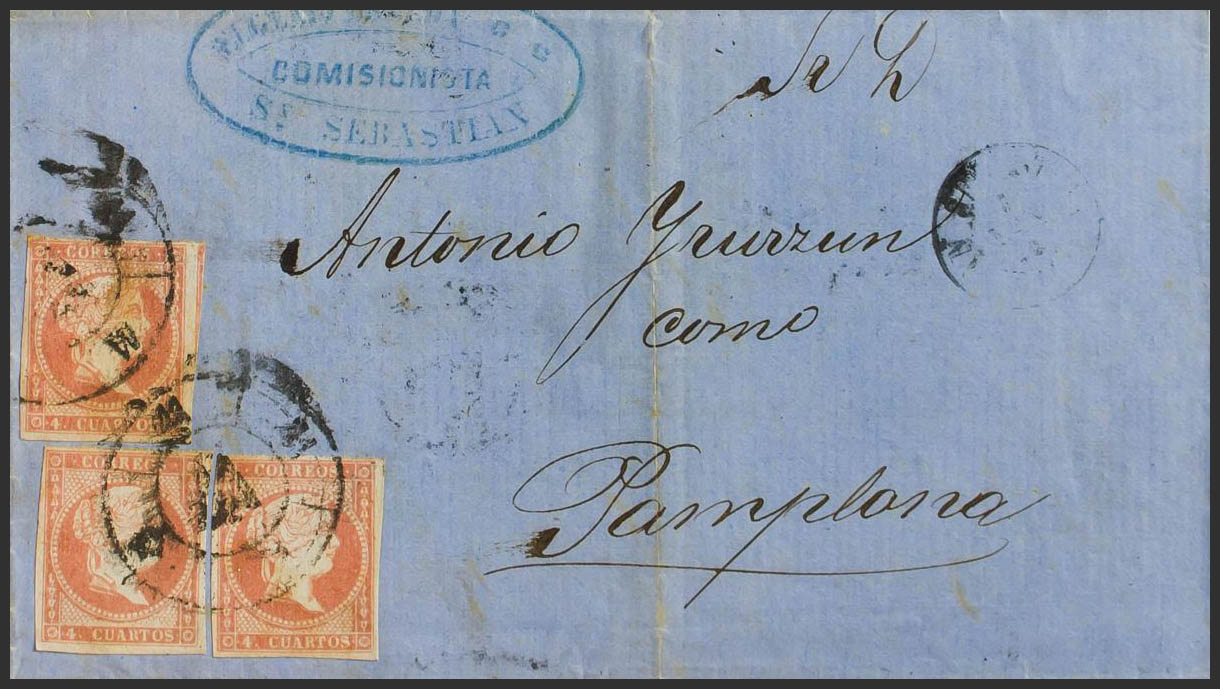 COMISIONISTA
Sn. SEBASTIAN
Sr D
Antonio Yrurzun
como
Pamplona
CORREOS
4 CUARTOS
CORREOS
4 CUARTOS
CORREOS
4 CUARTOS